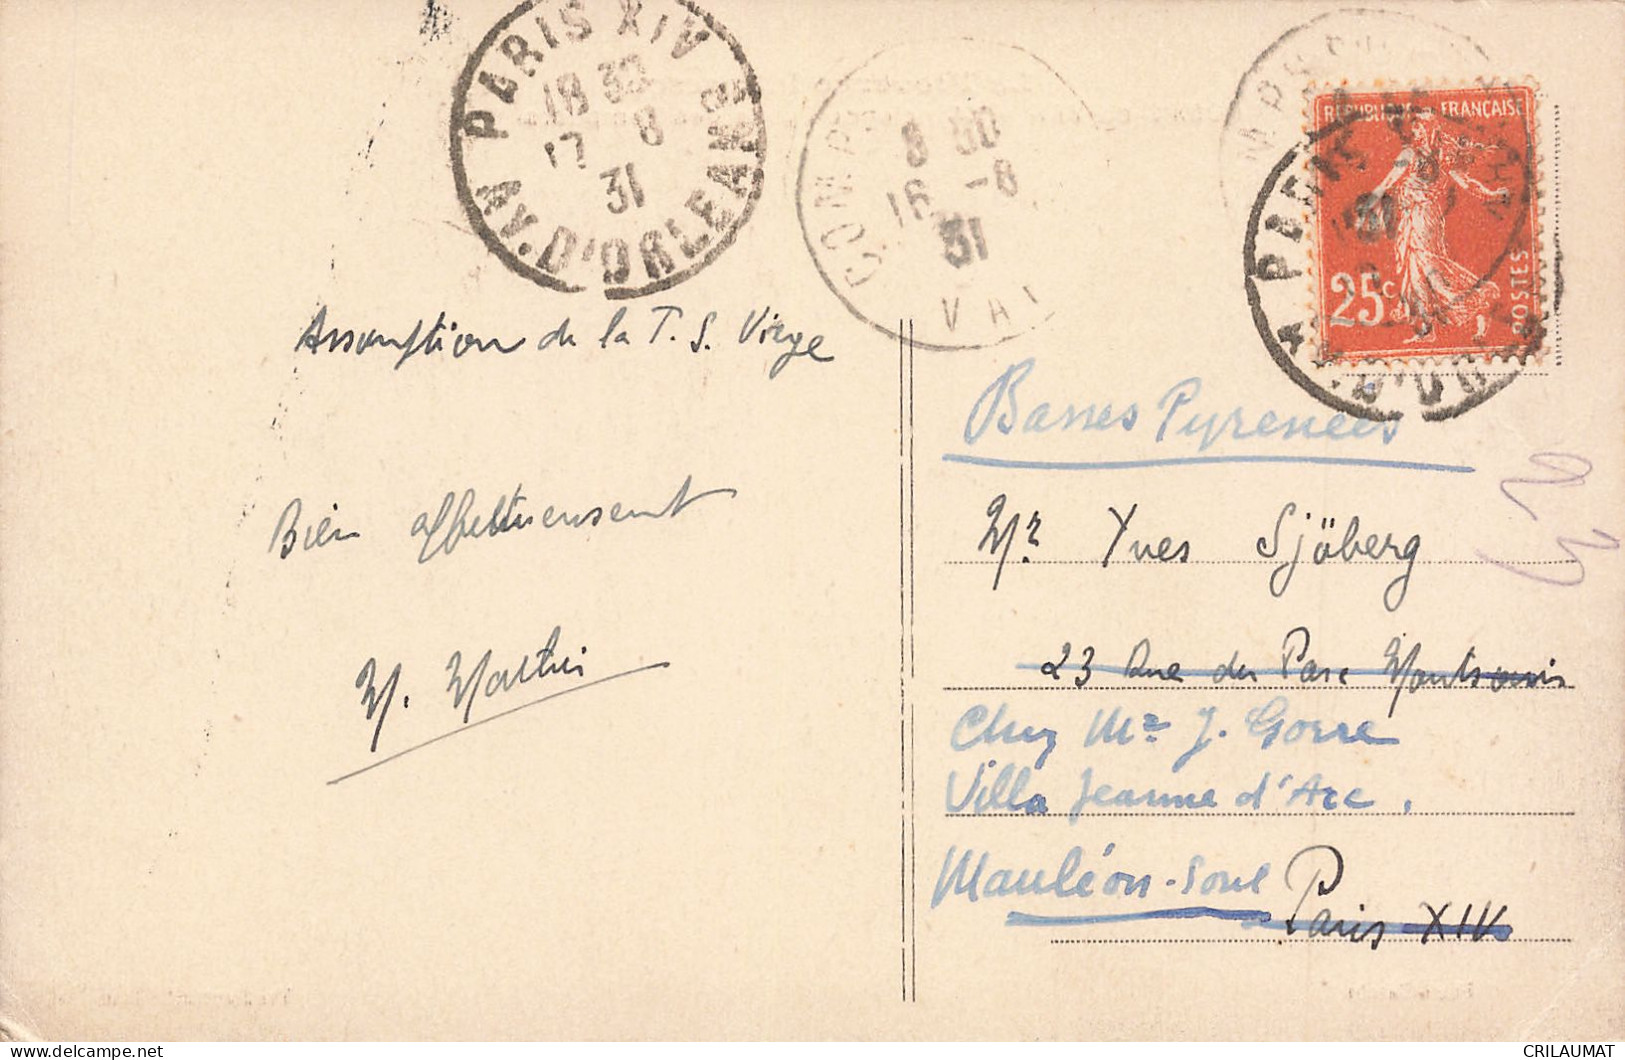 PARIS XIV
18 30
17 8
31
AV. D'ORLEANS
8 30
16 -8
31
RÉPUBLIQUE FRANÇAISE
25c
POSTES
Assomption de la T. S. Vierge
Bien affectueusement
M. Martin
Basses Pyrenees
Mr Yves Sjöberg
23 Rue du Parc Montsouris
Chez Mr J. Gorre
Villa Jeanne d'Arc.
Mauléon-Soule
Paris XIV
CRILAUMAT